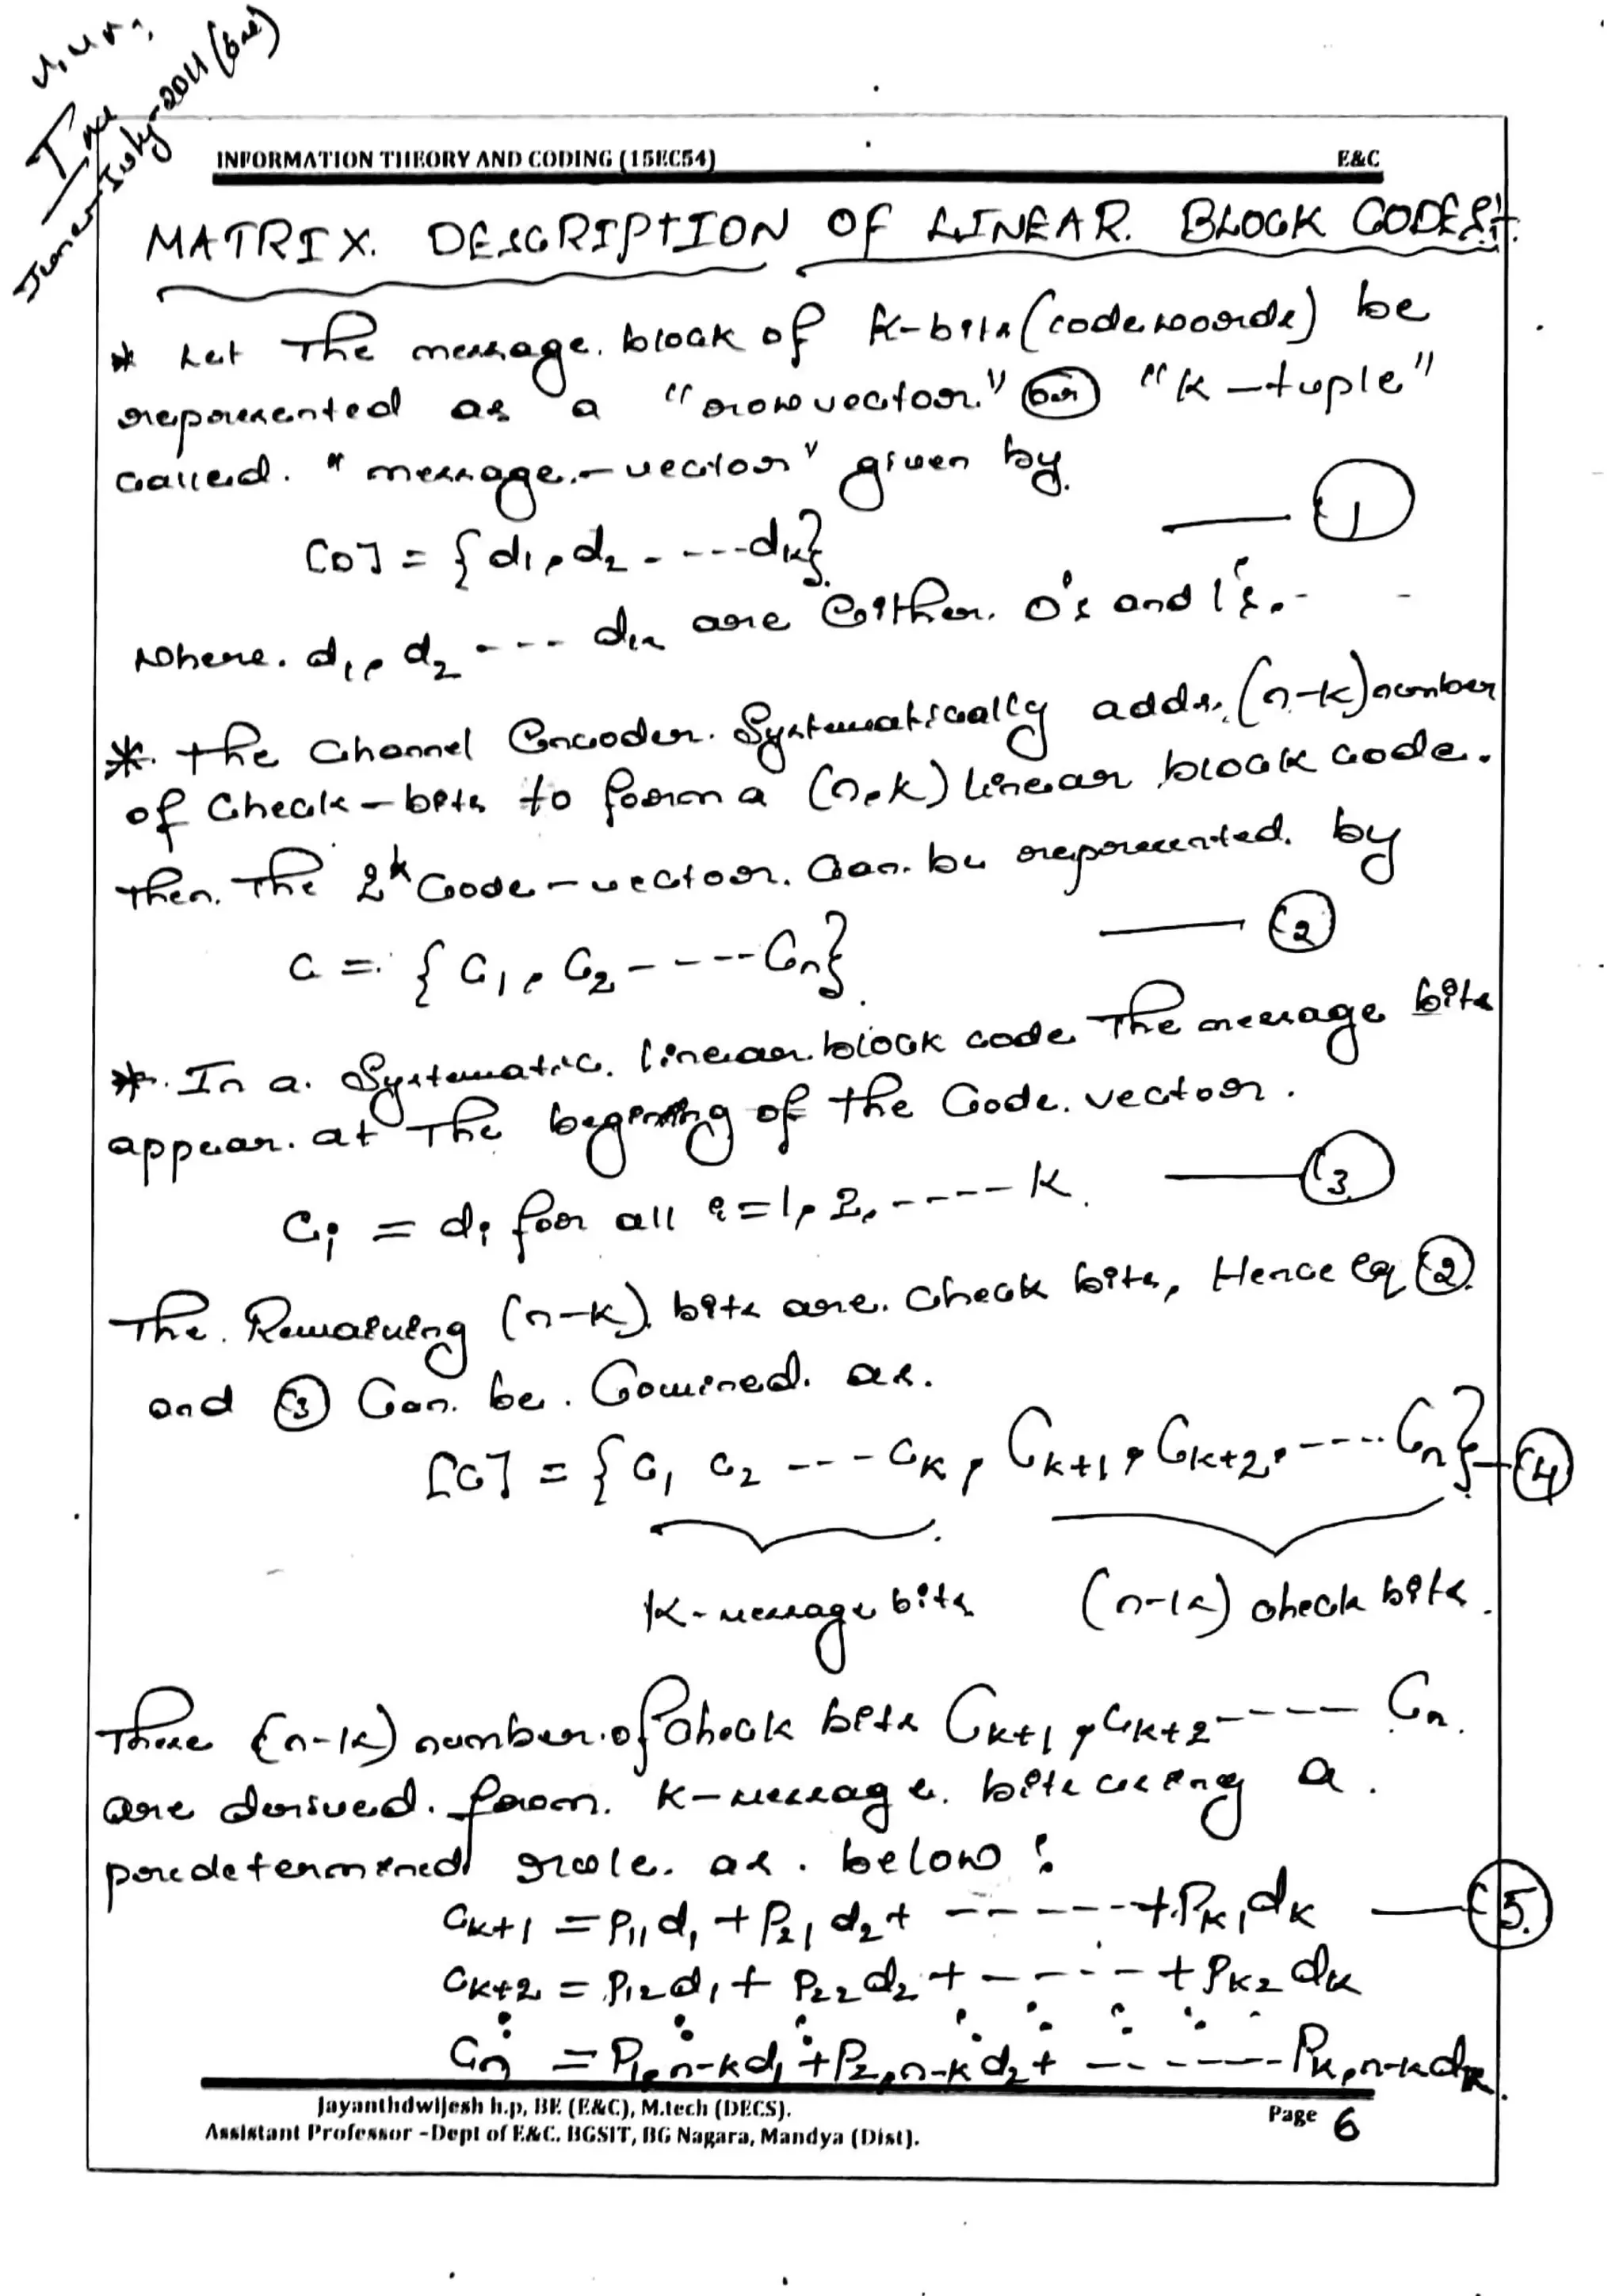 June-July-2011 (6m)
INFORMATION THEORY AND CODING (15EC54) E&C
MATRIX. DESCRIPTION OF LINEAR. BLOCK CODES:-
* Let The message. block of K-bits (codewords) be
represented as a "row vector." (or) "K-tuple"
called. "message.-vector" given by.
[D] = {d1, d2 - ---- dk} — (1)
where. d1, d2 --- dk are Either. 0's and 1's.-
*. the channel Encoder. Systematically adds, (n-k) number
of Check-bits to form a (n,k) linear block code.
Then. The 2^k Code-vector. Can. be represented. by
C = {C1, C2 - ---- Cn}. — (2)
*. In a. Systematic. linear. block code The message bits
appear. at The beginning of the Code. vector.
Ci = di for all i = 1, 2, ----- K. — (3)
The. Remaining (n-k). bits are. Check bits, Hence Eq (2).
and (3) Can. be. Comined. as.
[C] = {C1 C2 --- CK, CK+1, CK+2, ---- Cn} — (4)
K-message bits (n-k) check bits.
These (n-k) number. of Check bits CK+1, CK+2 ---- Cn.
are derived. from. K-message. bits using a.
predetermined rule. as. below:
CK+1 = P11 d1 + P21 d2 + ------ + PK1 dK — (5)
CK+2 = P12 d1 + P22 d2 + ----- + PK2 dK
Cn = P1,n-k d1 + P2,n-k d2 + ------ PK,n-k dK.
Jayanthdwijesh h.p, BE (E&C), M.tech (DECS).
Assistant Professor -Dept of E&C. BGSIT, BG Nagara, Mandya (Dist).
Page 6